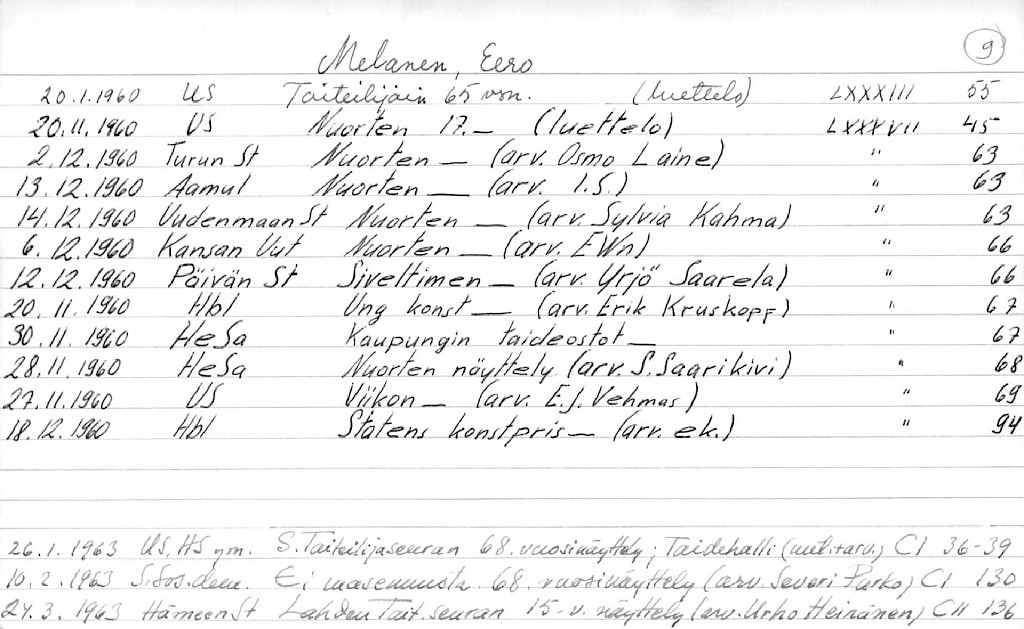 9
Melanen, Eero
20.1.1960 US Taiteilijain 65 vsn. (luettelo) LXXXIII 55
20.11.1960 US Nuorten 17.— (luettelo) LXXXVII 45
2.12.1960 Turun St Nuorten — (arv. Osmo Laine) " 63
13.12.1960 Aamul Nuorten — (arv. I.S.) " 63
14.12.1960 Uudenmaan St Nuorten — (arv. Sylvia Kahma) " 63
6.12.1960 Kansan Uut Nuorten — (arv. EWn) " 66
12.12.1960 Päivän St Siveltimen — (arv. Yrjö Saarela) " 66
20.11.1960 Hbl Ung konst — (arv. Erik Kruskopf) " 67
30.11.1960 HeSa Kaupungin taideostot — " 67
28.11.1960 HeSa Nuorten näyttely (arv. S. Saarikivi) " 68
27.11.1960 US Viikon — (arv. E.J. Vehmas) " 69
18.12.1960 Hbl Statens konstpris — (arv. ek.) " 94
26.1.1963 US, HS ym. S. Taiteilijaseuran 68. vuosinäyttely; Taidehalli (uut.+arv.) CI 36-39
10.2.1963 S. Sos.dem. Ei masennusta. 68. vuosinäyttely (arv. Severi Parko) CI 130
24.3.1963 Hämeen St Lahden Tait. seuran 15-v. näyttely (arv. Urho Heinänen) CII 136